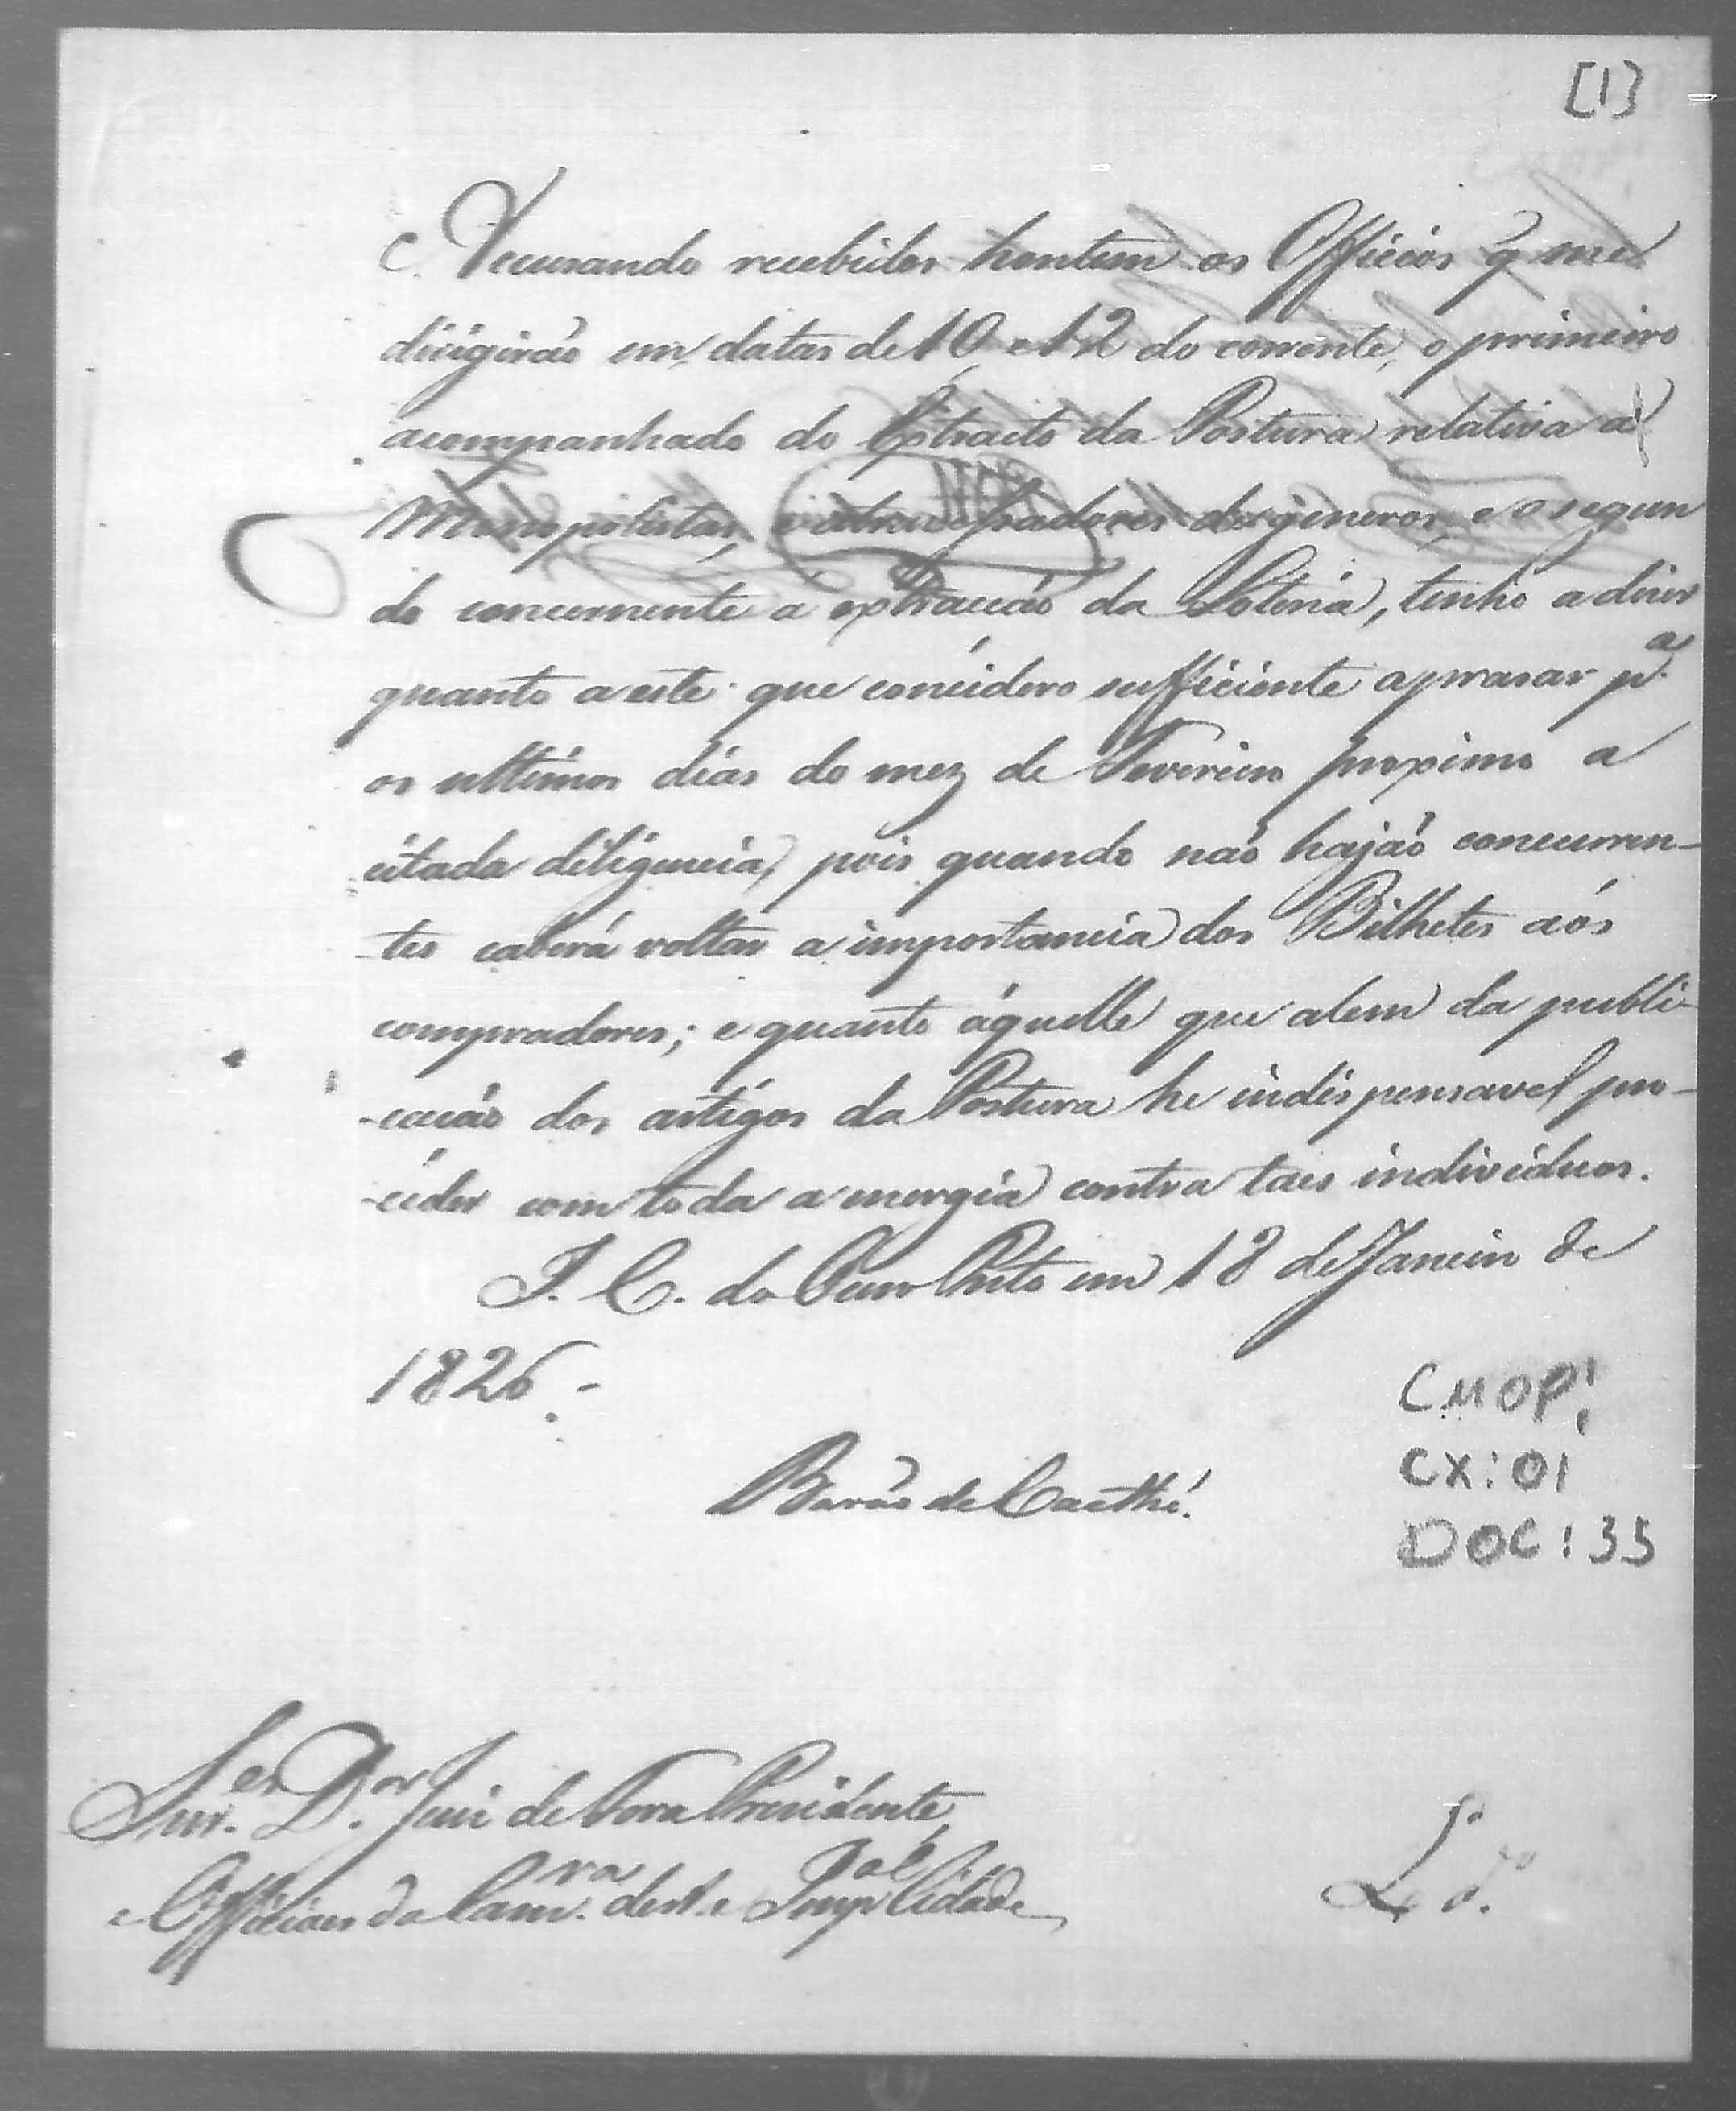 [1]
Accusando recebidos hontem os Officios q̃ me
dirigirão em datas de 10 e 12 do corrente, o primeiro
acompanhado do Extracto da Postura relativa a
Monopolistas, e atravessadores de generos, e o segun
do concernente á extracção da Loteria, tenho a dizer
quanto a este que concidero sufficiente aprasar p.ª
os ultimos dias do mez de Fevereiro proximo a
citada diligencia, pois quando não hajão concurren-
-tes caberá voltar a importancia dos Bilhetes aós
compradores; e quanto áquelle que alem da publi-
-cação dos artigos da Postura he indispensavel pro-
-ceder com toda a energia contra taes individuos.
I. C. do Ouro Preto em 18 de Janeiro de
1826.-
Barão de Caethé.
CMOP:
CX:01
DOC:35
Snr.es D.or Juiz de Fora Presidente,
e Officiaes da Cam.ra desta Imp.al Cidade